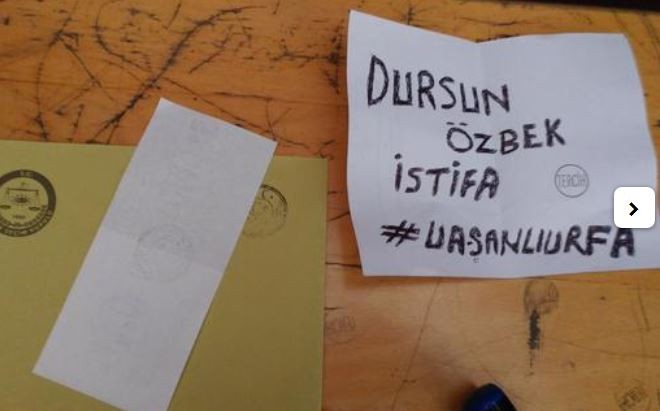 DURSUN
ÖZBEK
İSTİFA
TERCİH
#UAŞANLIURFA